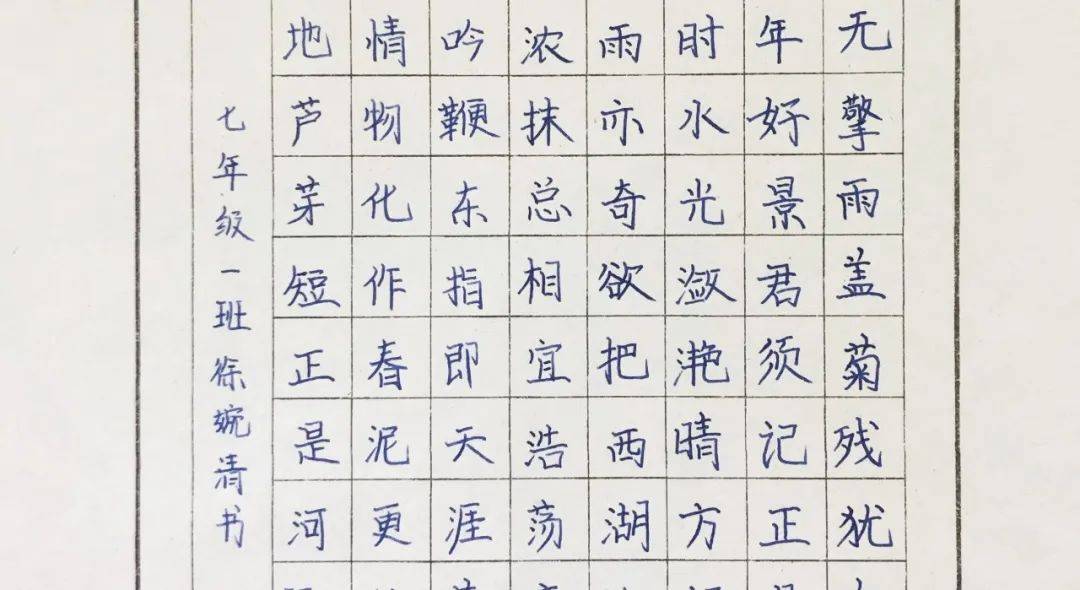 无擎雨盖菊残犹
年好景君须记正
时水光潋滟晴方
雨亦奇欲把西湖
浓抹总相宜浩荡
吟鞭东指即天涯
情物化作春泥更
地芦芽短正是河
七年级一班徐婉清书